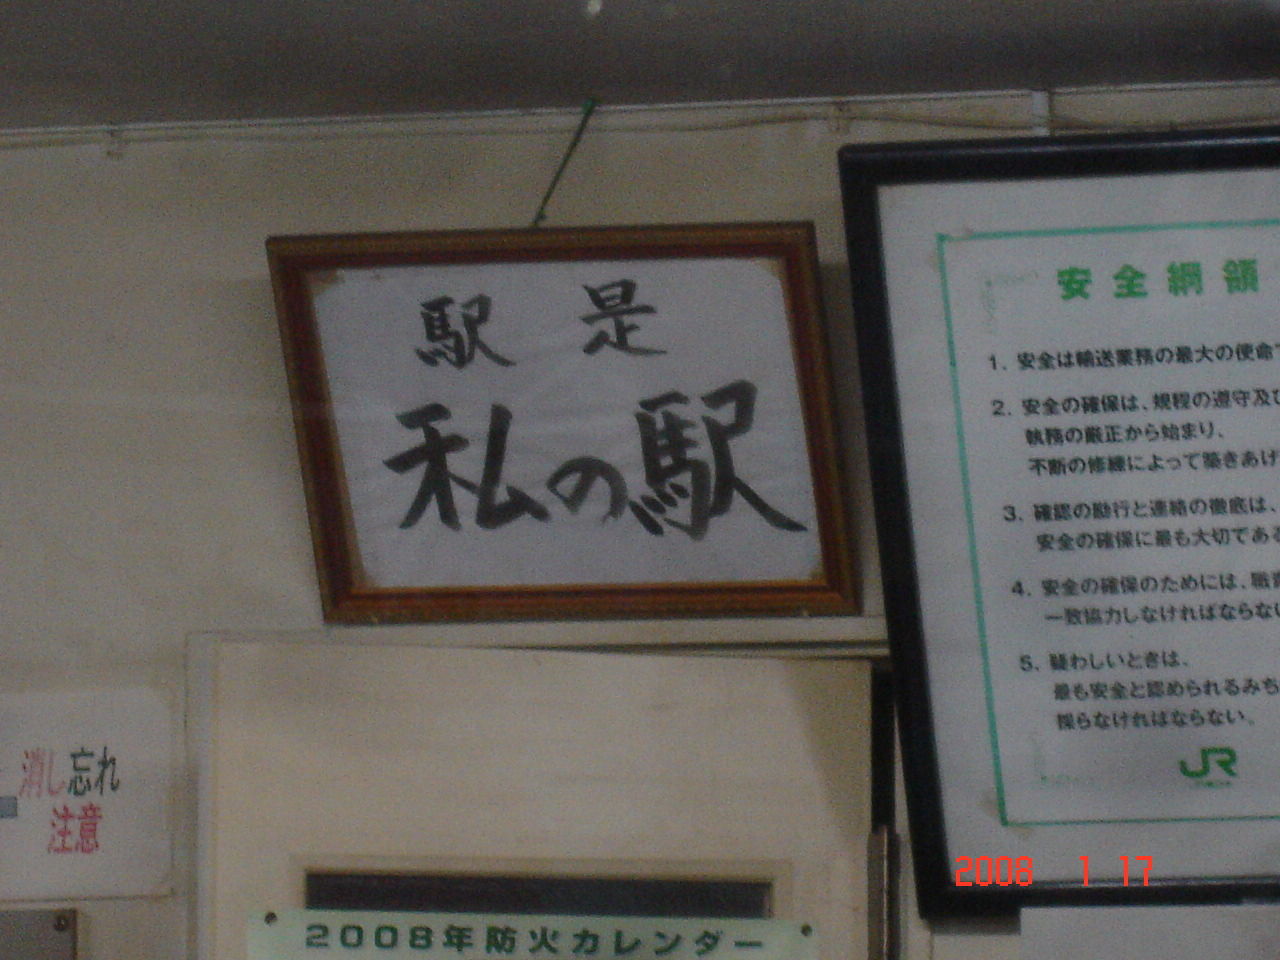 駅是
私の駅
安全綱領
1. 安全は輸送業務の最大の使命で
2. 安全の確保は、規程の遵守及び
執務の厳正から始まり、
不断の修練によって築きあげ
3. 確認の励行と連絡の徹底は、
安全の確保に最も大切である
4. 安全の確保のためには、職責
一致協力しなければならない
5. 疑わしいときは、
最も安全と認められるみち
採らなければならない。
JR
消し忘れ
注意
2008年防火カレンダー
2008 1 17